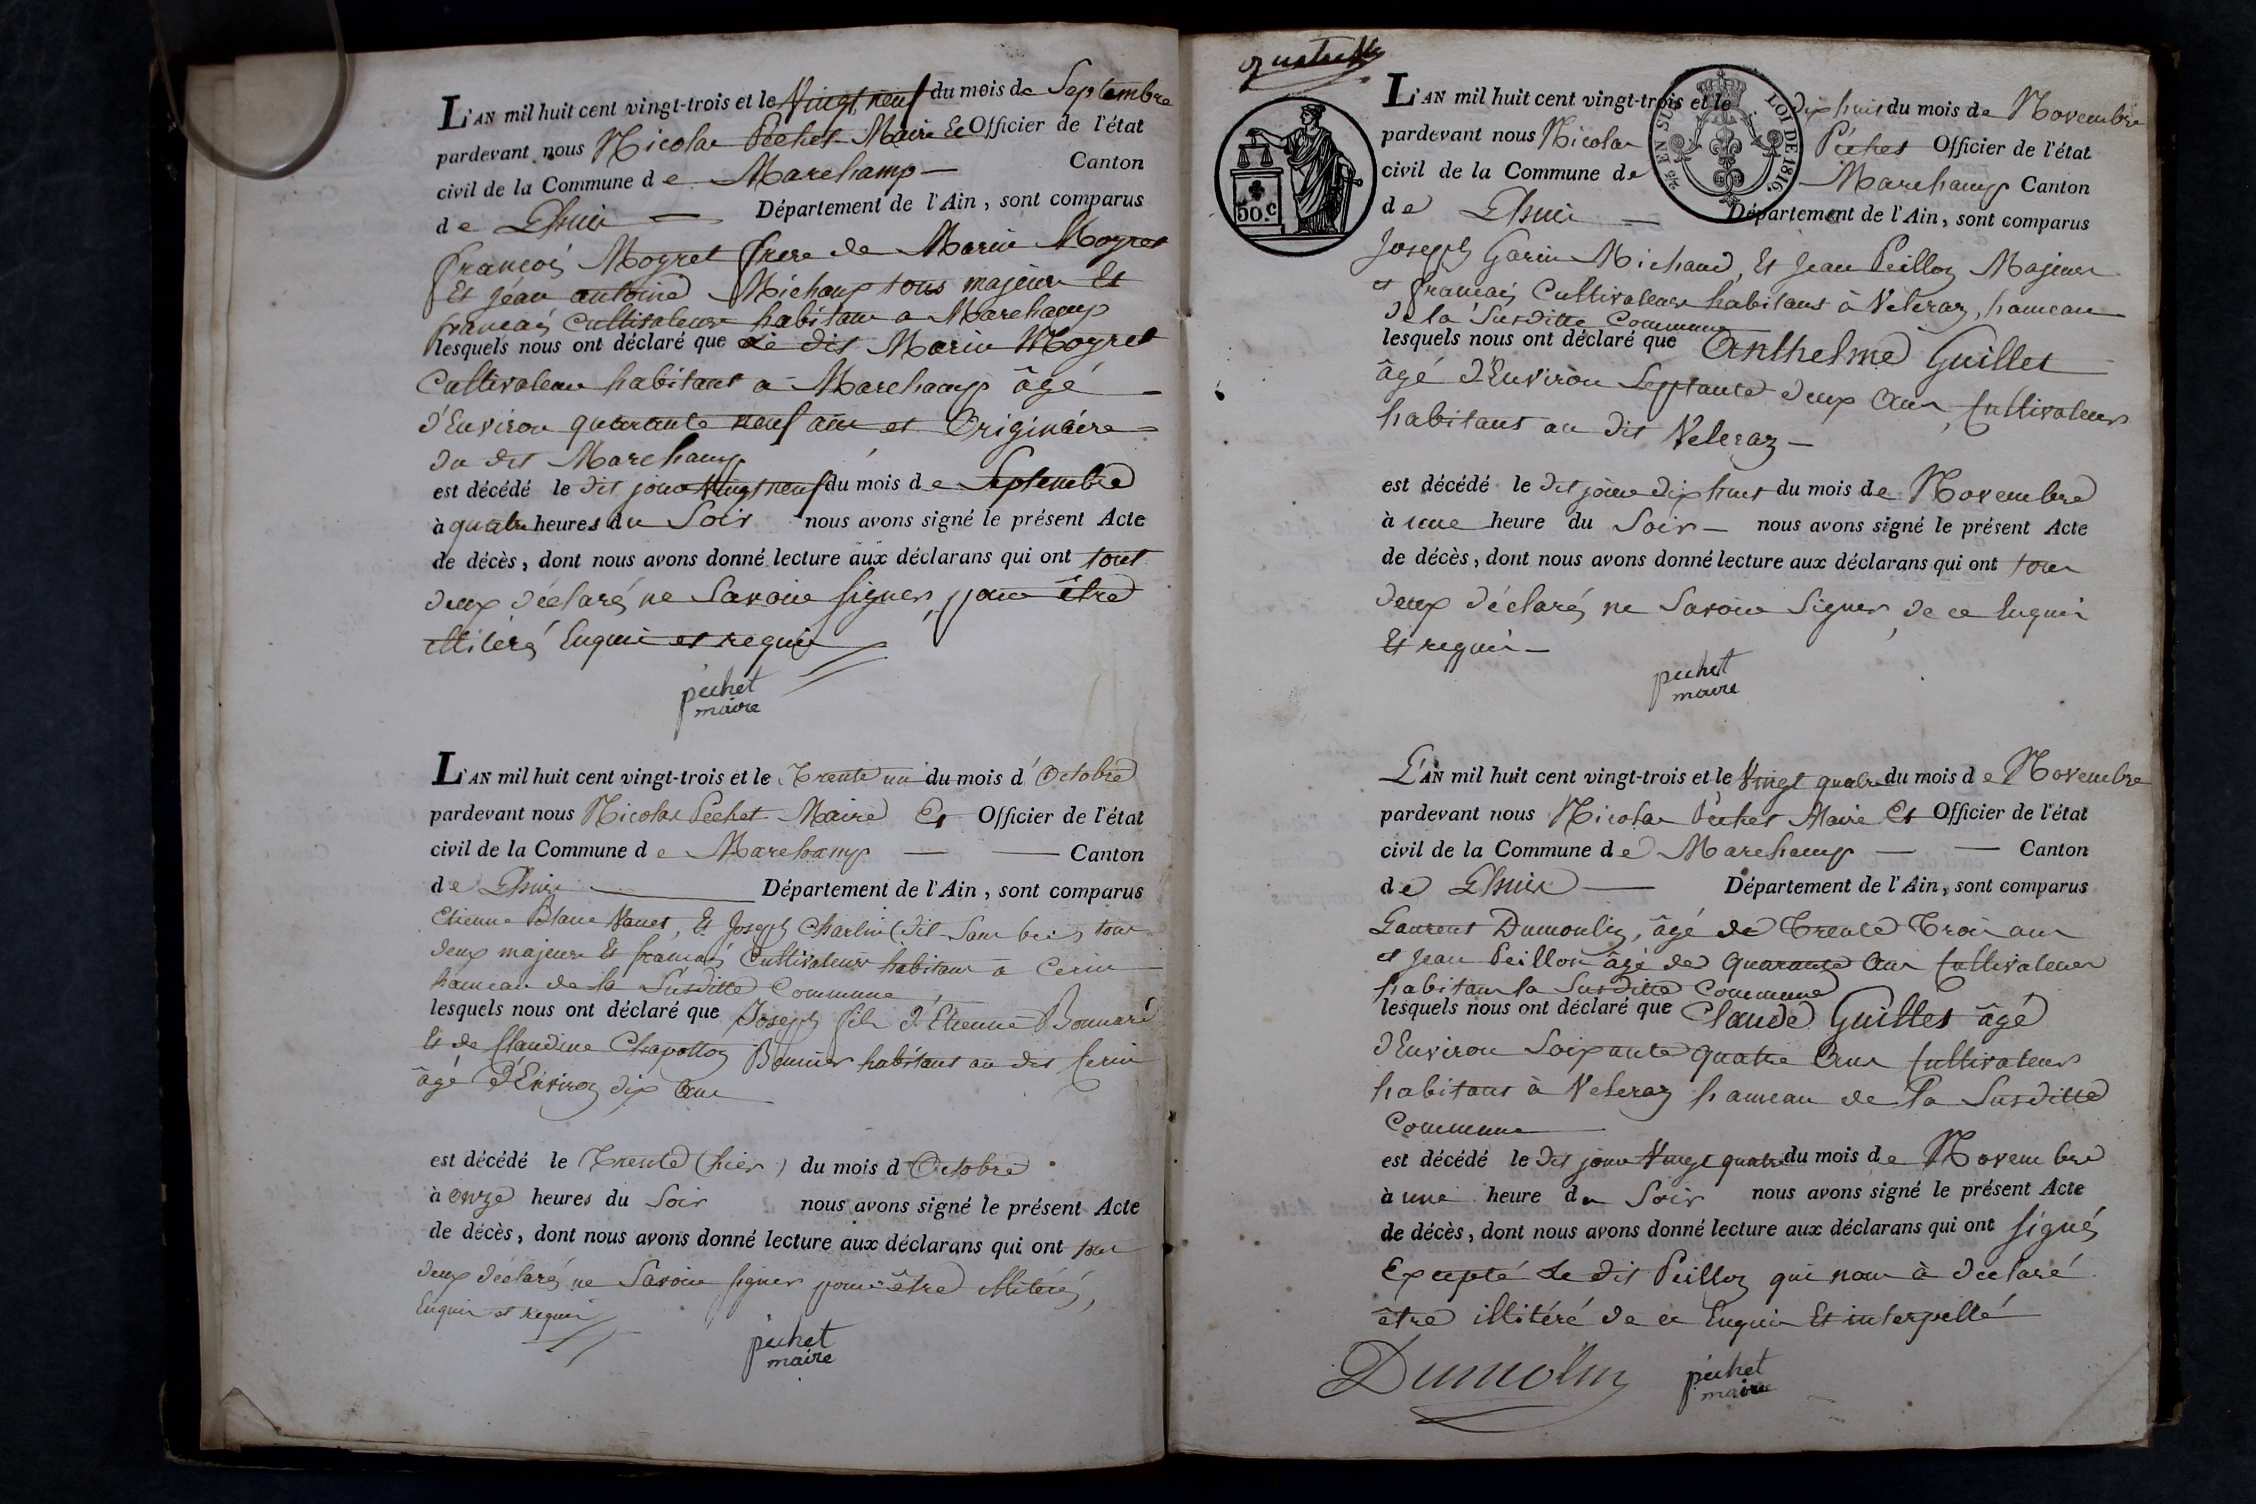 L'AN mil huit cent vingt-trois et le Vingt neuf du mois de Septembre
pardevant nous Nicolas Péchet Maire Et Officier de l'état
civil de la Commune de Marchamp — Canton
de Lhuis — Département de l'Ain, sont comparus
françois Moyret frere de Marin Moyret
Et Jéan antoine Michoux tous majeurs Et
francais Cultivateurs habitans a Marchamp
lesquels nous ont déclaré que Le dit Marin Moyret
Cultivateur habitant a Marchamp âgé —
d'Environ quarante neuf ans et Originaire
du dit Marchamp
est décédé le dit jour Vingt neuf du mois de Septembre
à quatre heures du Soir nous avons signé le présent Acte
de décès, dont nous avons donné lecture aux déclarans qui ont tout
deux déclarés ne Savoir signer, pour être
illitérés Enquis et requis
péchet
maire
L'AN mil huit cent vingt-trois et le Trente un du mois d'Octobre
pardevant nous Nicolas Péchet Maire Et Officier de l'état
civil de la Commune de Marchamp — — Canton
de Lhuis — Département de l'Ain, sont comparus
Etienne Blanc Nanet, Et Joseph Charlin (dit Sans bris) tous
deux majeurs Et francais Cultivateurs habitans à Cerin
hameau de la Susditte Commune,
lesquels nous ont déclaré que Joseph fils d'Etienne Bonnard
Et de Claudine Chapottoz Bonnier habitant au dit Cerin
âgé d'Environ dix ans
est décédé le Trente (hier) du mois d'Octobre
à onze heures du Soir nous avons signé le présent Acte
de décès, dont nous avons donné lecture aux déclarans qui ont tous
deux déclarés ne Savoir signer pour être illitérés,
Enquis et requis
péchet
maire
50.c
EN SUS
LOI DE 1816.
L'AN mil huit cent vingt-trois et le dix huit du mois de Novembre
pardevant nous Nicolas Péchet Officier de l'état
civil de la Commune de Marchamp Canton
de Lhuis — Département de l'Ain, sont comparus
Joseph Garin Michaud, Et Jean Peilloz Majeurs
et francais Cultivateurs habitans à Veleraz, hameau
de la Susditte Commune
lesquels nous ont déclaré que Anthelme Guillet
âgé d'Environ Septante deux ans, Cultivateur
habitant au dit Veleraz —
est décédé le dit jour dix huit du mois de Novembre
à une heure du Soir — nous avons signé le présent Acte
de décès, dont nous avons donné lecture aux déclarans qui ont tous
deux déclarés ne Savoir Signer, de ce Enquis
Et requis —
péchet
maire
L'AN mil huit cent vingt-trois et le Vingt quatre du mois de Novembre
pardevant nous Nicolas Péchet Maire Et Officier de l'état
civil de la Commune de Marchamp — — Canton
de Lhuis — Département de l'Ain, sont comparus
Laurent Dumoulin, âgé de Trente Trois ans
et Jean Peilloz âgé de quarante ans Cultivateurs
habitans la Susditte Commune
lesquels nous ont déclaré que Claude Guillet âgé
d'Environ Soixante quatre ans Cultivateur
habitant à Veleraz hameau de la Susditte
Commune —
est décédé le dit jour Vingt quatre du mois de Novembre
à une heure du Soir nous avons signé le présent Acte
de décès, dont nous avons donné lecture aux déclarans qui ont signés
Excepté Le dit Peilloz qui nous à déclaré
être illitéré de ce Enquis Et interpellé
Dumolin
péchet
maire